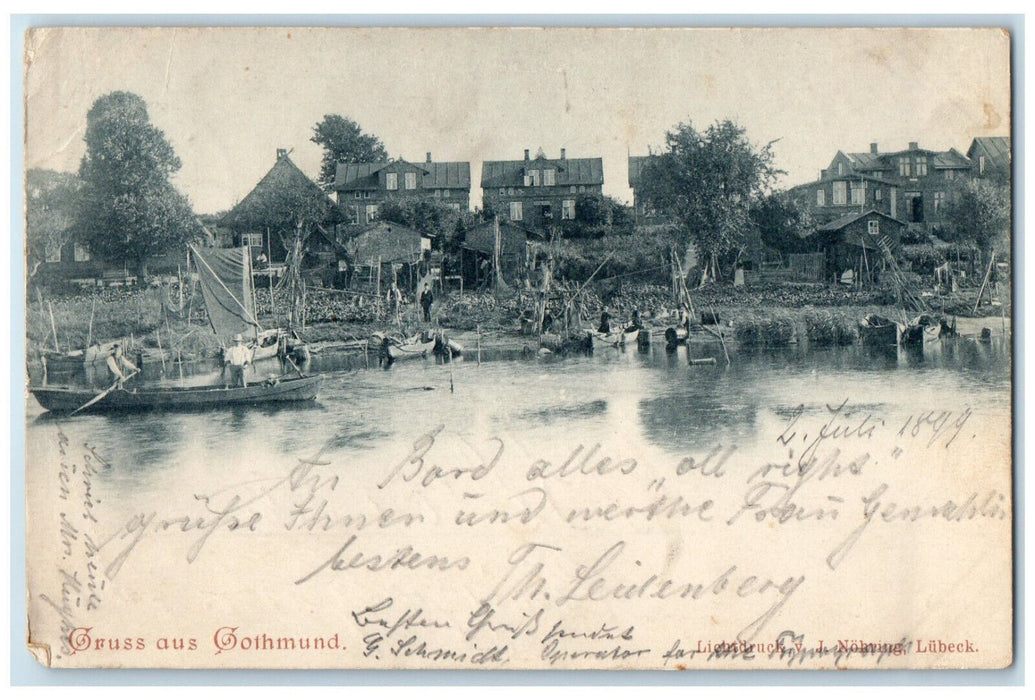 2. Juli 1899.
An Bord alles „all right"
grüße Ihnen und werthe Frau Gemahlin
bestens Th. Leidenberg
Besten Gruß sendet
G. Schmidt, Operator for the
Schrieb heute
an Mr. Hughes
Gruss aus Gothmund.
Lichtdruck v. J. Nöhring, Lübeck.